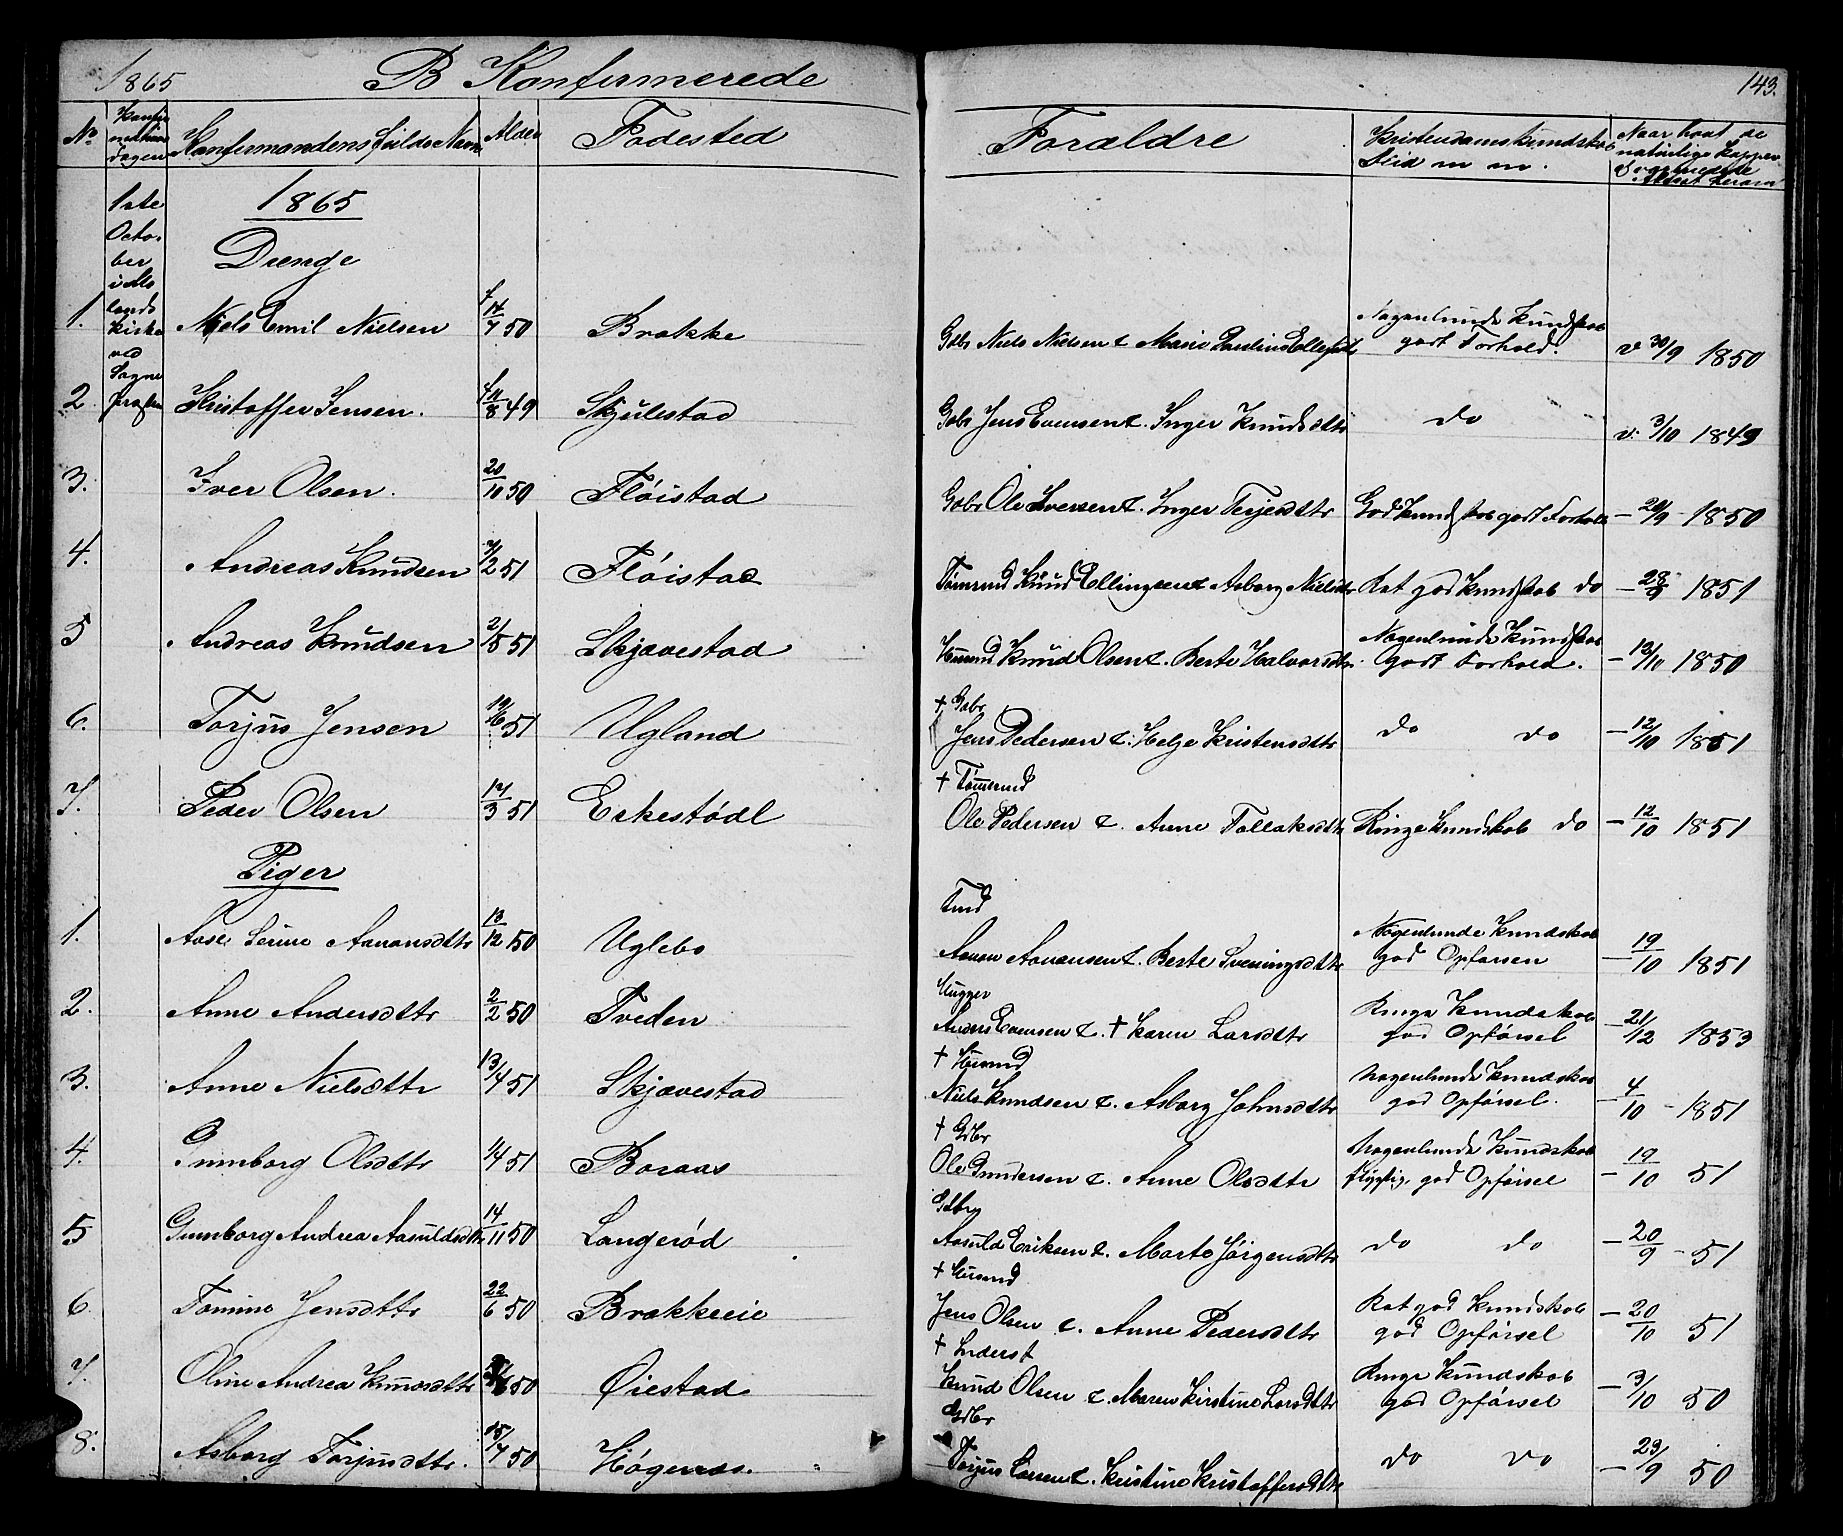 1865 B Konfirmerede
143.
No Konfirmations dagen Konfirmandens fulde Navn Alder Fødested Forældre Kristendomskundskab Flid m m. Naar havt de naturlige Kopper
1ste October i kirke ved
1865
Drenge
1. Niels Emil Nielsen f 14/7 50 Brække Gbr Niels Nielsen & Marie Pauline Nogenlunde Kundskab godt Forhold. v 30/9 1850
2 Kristoffer Jensen. f 11/8 49 Skjulestad Gbr Jens Evensen & Inger Knudsdtr do v. 3/10 1849
3. Iver Olsen. 20/10 50 Fløistad Gbr Ole Iversen & Inger Terjesdtr God Kundskab godt Forhold – 20/9 – 1850
4. Andreas Knudsen 7/2 51 Fløistad Tømrmd Knud Ellingsen & Asborg Nielsdtr Rat god Kundskab do – 28/9 1851
5 Andreas Knudsen 2/8 51 Skjævestad Husmd Knud Olsen & Berte Halvorsdtr. Nogenlunde Kundskab godt Forhold. – 13/10 1850
6. Torjus Jensen 19/6 51 Ugland
† Gbr
Jens Pedersen & Helje Kristensdtr do do – 12/10 1851
7. Peder Olsen 17/3 51 Eikestødl
† Tømrmd
Ole Pedersen & Anne Tollaksdtr Ringe Kundskab do – 12/10 1851
Piger
1. Aase Serine Aanonsdtr 13/12 50 Uglebo
Aanon Aanonsen & Berte Sveningsdtr Nogenlunde Kundskab god Opførsen – 19/10 1851
2. Anne Andersdtr 2/2 50 Tveden
Anders Evensen & † Karen Larsdtr Ringe Kundskab god Opførsel – 21/12 1853
3. Anne Nielsdtr 13/4 51 Skjævestad
† Husmd
Niels Knudsen & Asborg Johnsdtr nogenlunde Kundskab god Opførsel. – 4/10 – 1851
4. Gunborg Olsdtr 1/4 51 Boraas
† Gbr
Ole Gundersen & Anne Olsdtr Nogenlunde Kundskab god Opførsel – 19/10 51
5 Gunborg Andrea Aasuldsdtr 14/11 50 Langerød
Gbr
Aasuld Eriksen & Marte Jørgensdtr do do – 20/9 – 51
6. Tomine Jensdtr 22/6 50 Brækkeeie
† Husmd
Jens Olsen & Anne Pedersdtr Rat god Kundskab god Opførsel – 20/10 51
7. Oline Andrea Knudsdtr 50 Øiestad
† Inderst
Knud Olsen & Maren Kirstine Larsdtr Ringe Kundskab god Opførsel – 3/10 50
8. Asborg Torjusdtr. 15/7 50 Høgenæs.
Gbr
Torjus & Kristine Kristoffersdtr do do – 23/9 50